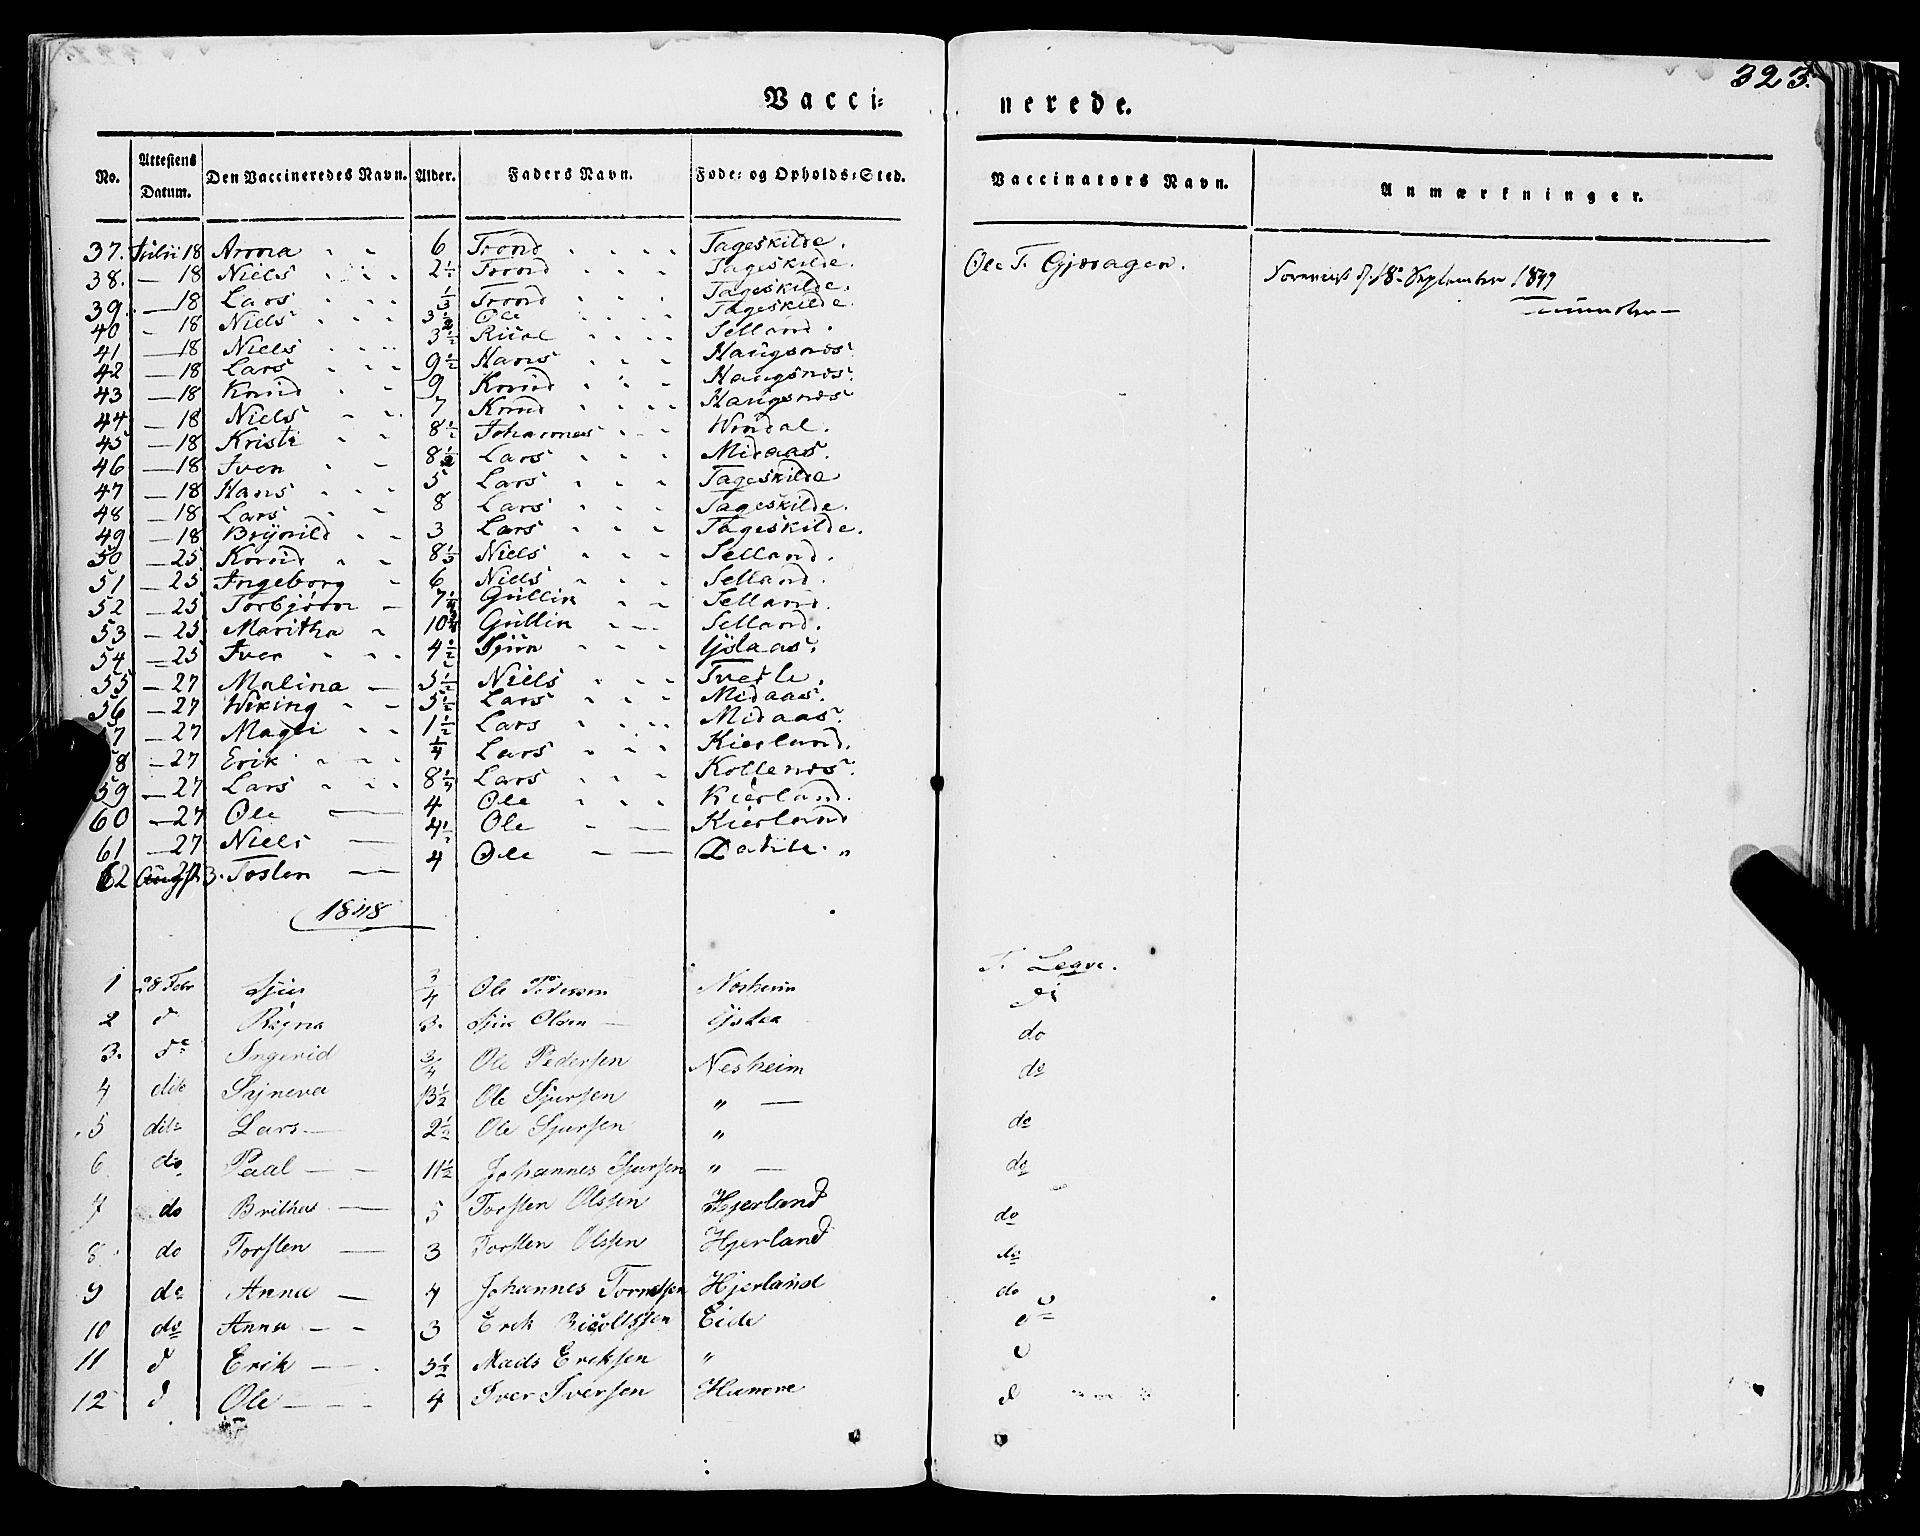 323.
Vacci= nerede.
No. Attestens Datum. Den Vaccineredes Navn. Alder. Faders Navn. Føde= og Opholds=Sted. Vaccinators Navn. Anmærkninger.
37. Julii 18 Anna 6 Trond Tageskilde. Ole T. Gjeragen.
38. — 18 Niels 2½ Trond Tageskilde. 18 September 1849
39. — 18 Lars ⅓ Trond Tageskilde.
40 - 18 Niels 3½ Ole Tageskilde.
41 — 18 Niels 3½ Selland.
42 — 18 Lars 9½ Hans Haugsnæs.
43 — 18 Knud 9 Knud Haugsnæs.
44 — 18 Niels 7 Knud Haugsnæs
45 — 18 Kristi 8½ Johannes Windal.
46 — 18 Iver 8½ Lars Midaas.
47 — 18 Hans 5 Lars Tageskilde
48 — 18 Lars 8 Lars Tageskilde.
49 — 18 Brynild 3 Lars Tageskilde.
50 — 25 Knud 8⅓ Niels Selland.
51 — 25 Ingeborg 6 Niels Selland.
52 — 25 Torbjörn 7¼ Gullik Selland.
53 — 25 Maritha 10¾ Gullik Selland.
54 — 25 Iver 4½ Sjur Ystaas.
55 — 27 Malina 5½ Niels
56 — 27 Wiking 5½ Lars Midaas.
57 — 27 Magli 1½ Lars Midaas.
58 — 27 Erik ¼ Lars Kierland.
59 — 27 Lars 8¼ Lars Kollenæs.
60 — 27 Ole 4 Ole Kierland.
61 — 27 Niels 4½ Ole Kierland
62 Augst 3. Tosten 4 Ole
1848
1 28 Febr Sjur ¾ Ole Pedersen Nesheim T. Legve.
2 d Ragna 3. Sjur Olsen Ystaa do
3. do Ingerid ¾ Ole Pedersen Nesheim do
4 dito Synneva 13½ Ole Sjursen " — do
5 dito Lars 2½ Ole Sjursen " do
6 do Paal 11½ Johannes Sjursen " — do
7 do Britha 5 Torsten Olssen Hjerland do
8. do Torsten 3 Torsten Olssen Hjerland do
9 do Anna 4 Johannes Hjerland do
10 do Anna 3 Erik Eide
11 d Erik 3½ Mads Eriksen "
12 d Ole 4 Iver Iversen Hamre d